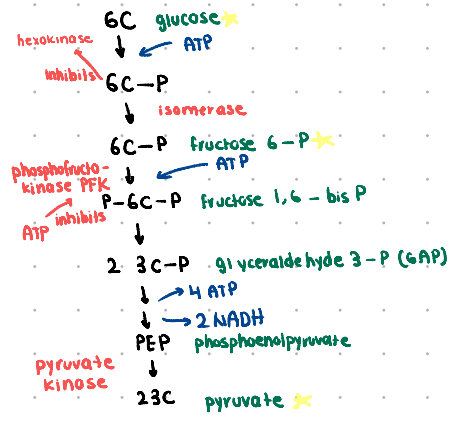 6C glucose
hexokinase
ATP
inhibits
6C-P
isomerase
6C-P fructose 6-P
phosphofructo-
kinase PFK
ATP
P-6C-P fructose 1,6-bis P
inhibits
ATP
2 3C-P glyceraldehyde 3-P (GAP)
4 ATP
2 NADH
PEP phosphoenolpyruvate
pyruvate
kinase
2 3C pyruvate